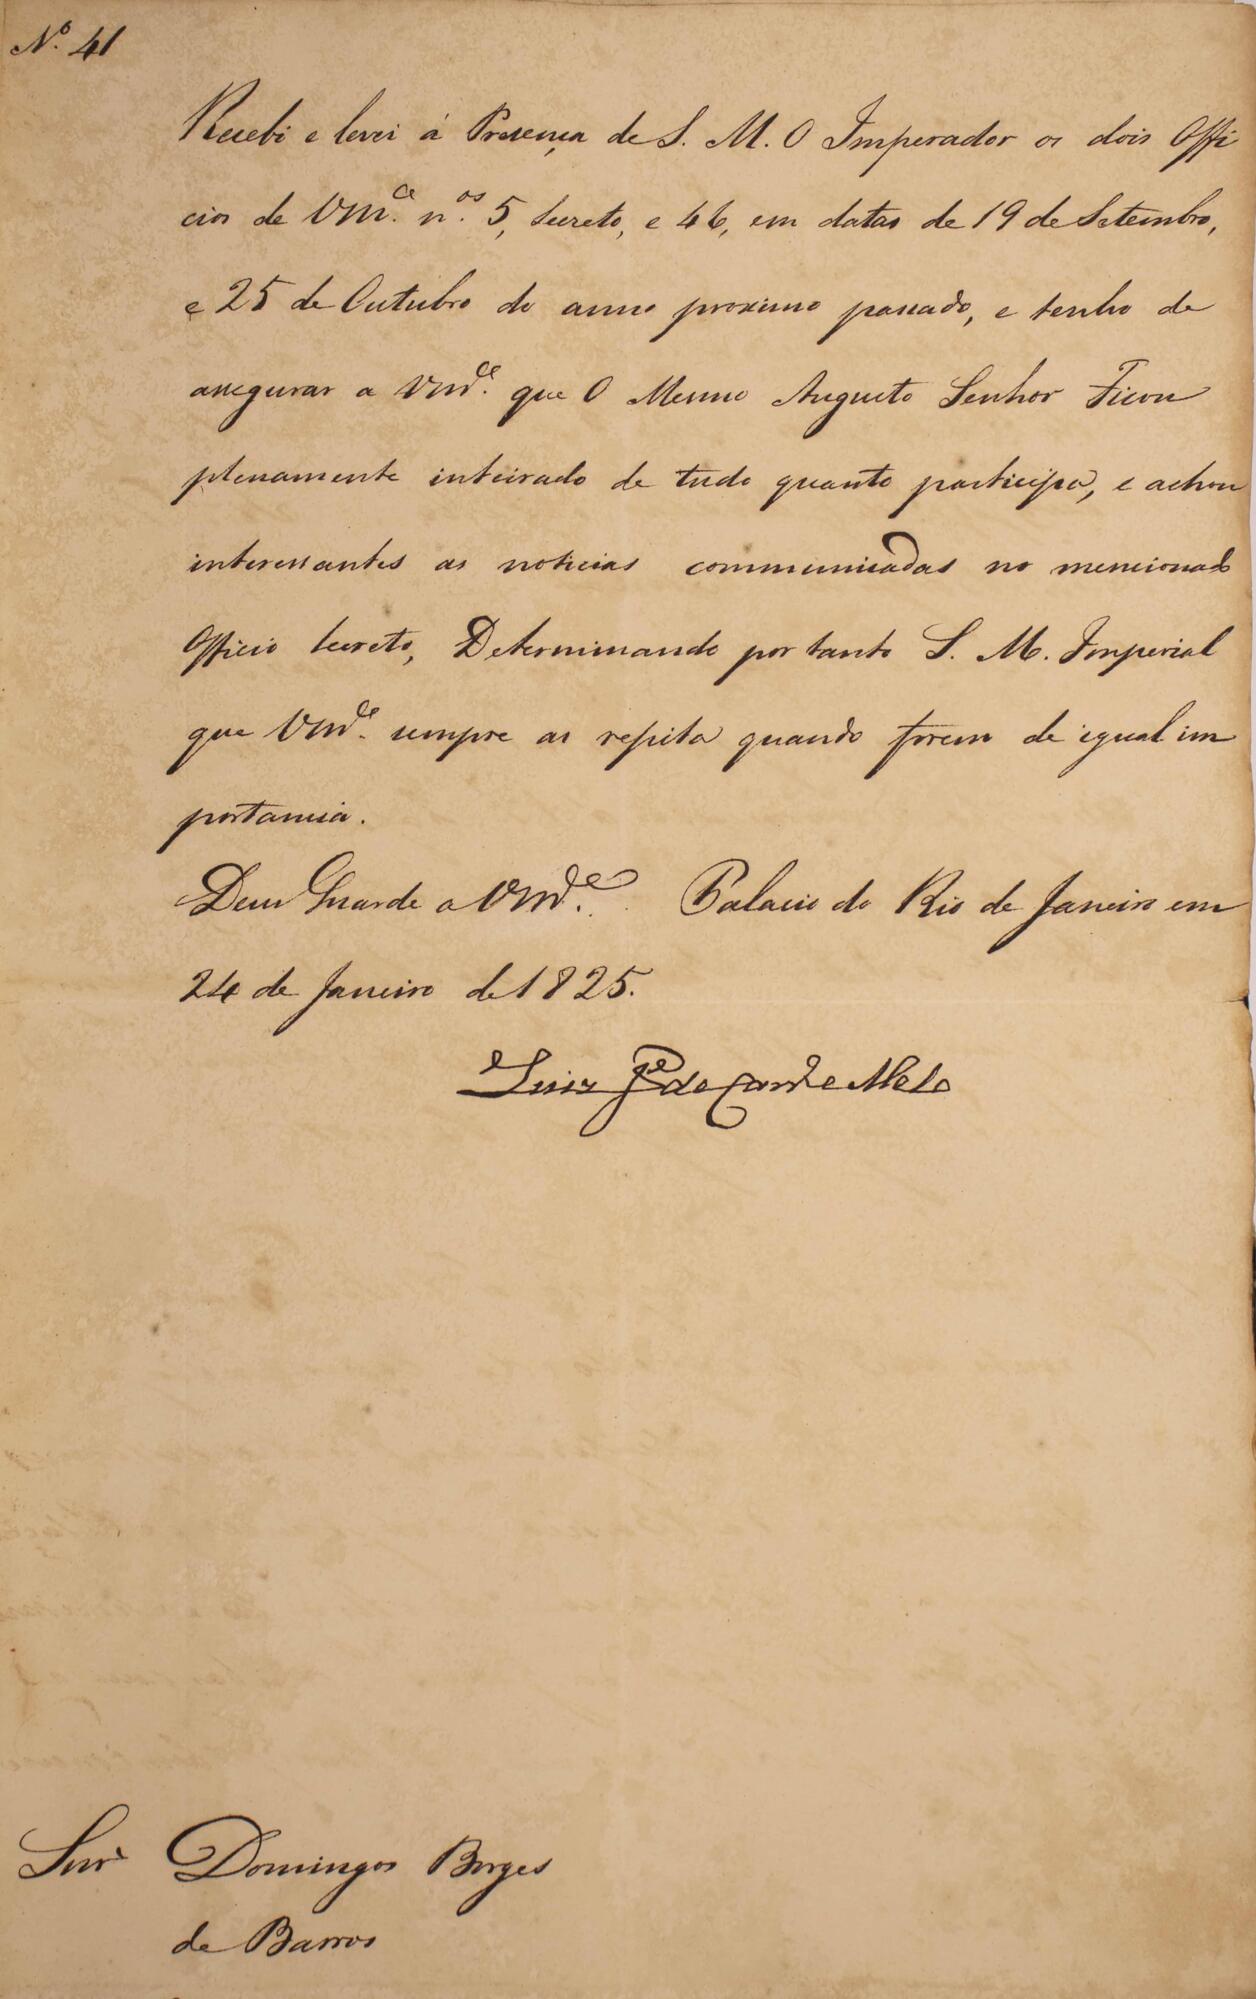 Nº. 41
Recebi e levei á Presença de S. M. O Imperador os dois Offi
cios de Vmce. nos. 5, secreto, e 46, em datas de 19 de Setembro,
e 25 de Outubro do anno proximo passado, e tenho de
assegurar a Vmce. que O Mesmo Augusto Senhor Ficou
plenamente inteirado de tudo quanto participa, e achou
interessantes as noticias communicadas no mencionado
Officio secreto, Determinando por tanto S. M. Imperial
que Vmce. sempre as repita quando forem de igual im
portancia.
Deus Guarde a Vmce. Palacio do Rio de Janeiro em
24 de Janeiro de 1825.
Luiz Je. de Carvo. e Mello
Snr. Domingos Borges
de Barros